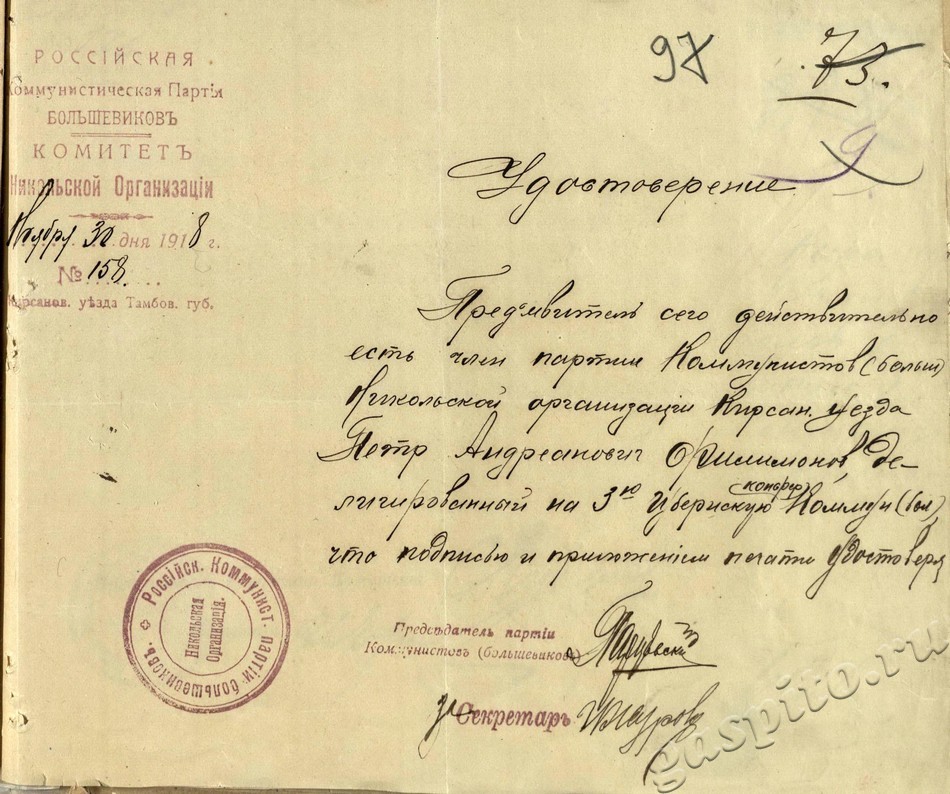 РОССІЙСКАЯ
Коммунистическая Партія
БОЛЬШЕВИКОВЪ
КОМИТЕТЪ
Никольской Организаціи
Ноября 30 дня 1918 г.
№ 158
Кирсанов. уѣзда Тамбов. губ.
97
73.
9
Удостоверение
Предъявитель сего действительно
есть член партии Коммунистов (больш)
Никольской организаціи Кирсан. уезда
Петр Андреанович Филимонов, де-
лигированный на 3ю Губернскую конфер. Коммун (бол)
что подписью и приложеніем печати удостоверя
Россійск. Коммунист. партіи большевиковъ.
Никольская
Организація.
Предсѣдатель партіи
Коммунистовъ (большевиковъ)
за Секретарь
gaspito.ru